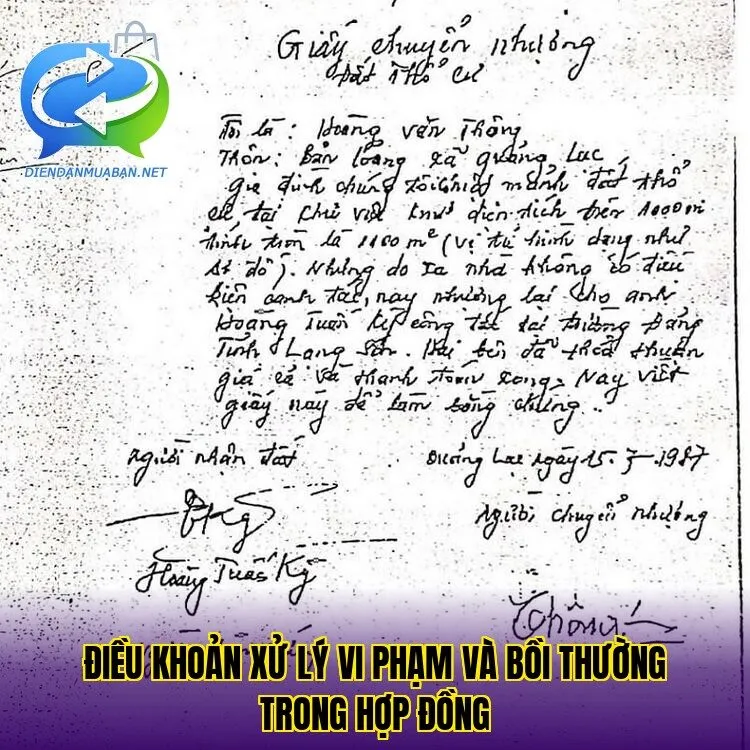 Giấy chuyển nhượng
Đất thổ cư
DIENDANMUABAN.NET
Tôi là: Hoàng Văn Thông
Thôn: Bản Loỏng xã Quảng Lạc
gia đình chúng tôi có mảnh đất thổ
cư tại khu vực diện tích trên
tính tròn là 1100 m² (vị trí hình dạng như
sơ đồ). Nhưng do xa nhà không có điều
kiện canh tác, nay nhường lại cho anh
Hoàng Tuấn Kỳ công tác tại trường Đảng
Tỉnh Lạng Sơn. Hai bên đã thỏa thuận
giá cả và thanh toán xong. Nay viết
giấy này để làm bằng chứng..
Người nhận đất
Quảng Lạc ngày 15 - 7 - 1987
Người chuyển nhượng
Hoàng Tuấn Kỳ
Thông
ĐIỀU KHOẢN XỬ LÝ VI PHẠM VÀ BỒI THƯỜNG
TRONG HỢP ĐỒNG